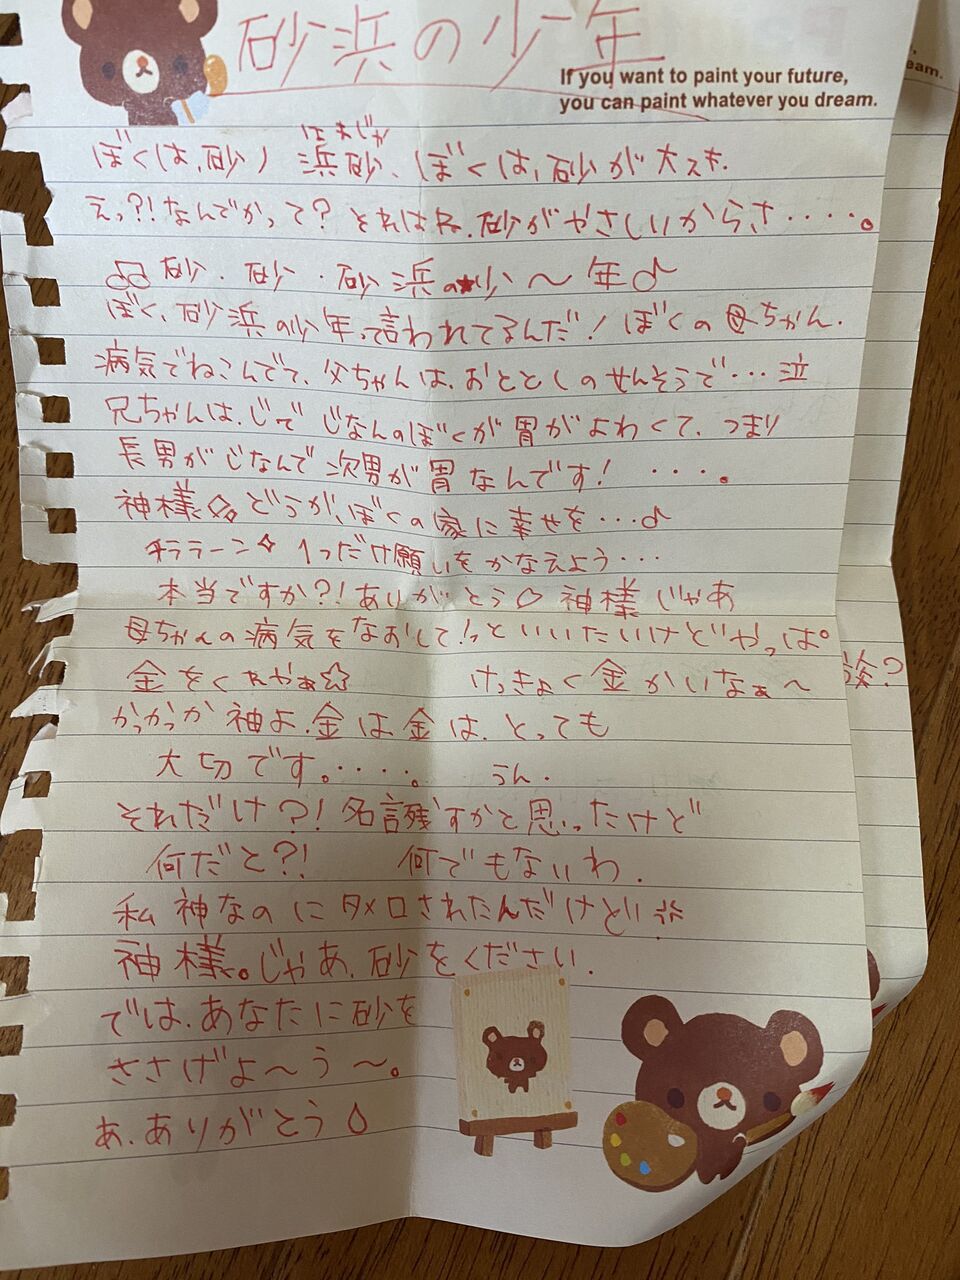 砂浜の少年
If you want to paint your future,
you can paint whatever you dream.
eam.
ぼくは、砂ノ浜砂、ぼくは、砂が大スキ.
はまじゃ
えっ?!なんでかって?それはね.砂がやさしいからさ・・・・・。
♫砂・砂・砂浜の★少〜年♪
ぼく、砂浜の少年って言われてるんだ!ぼくの母ちゃん.
病気でねこんでて、父ちゃんは、おととしのせんそうで…泣
兄ちゃんは、じで じなんのぼくが胃がよわくて、つまり
長男がじなんで次男が胃なんです! ・・・・。
神様 どうか、ぼくの家に幸せを…♪
チララーン✧ 1つだけ願いをかなえよう…
本当ですか?!ありがとう♡ 神様じゃあ
母ちゃんの病気をなおして!っといいたいけどやっぱ。
金をくれやぁ☆ けっきょく金かいなぁ〜
族?
かっかっか神よ.金は金は、とっても
大切です。・・・・。 うん.
それだけ?!名言残すかと思ったけど
何だと?!  何でもないわ.
私神なのにタメ口されたんだけど!!
神様。じゃあ、砂をください.
では、あなたに砂を
ささげよ〜う〜。
あ、ありがとう